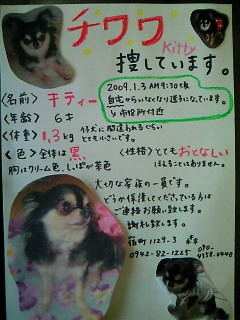 チワワ
Kitty
捜しています。
〈名前〉 キティー
2009.1.3 AM9:30頃
自宅からいなくなり迷子になっています。
市役所付近
〈年齢〉 6才
〈体重〉 1.3kg
仔犬に間違われるぐらい
とても小さいです。
〈色〉全体は黒
胸はクリーム色、しっぽが茶色
〈性格〉とてもおとなしい
ほえることはありません。
大切な家族の一員です。
どうか保護してくださっている方は
ご連絡お願い致します。
謝礼致します。
1129-3
0942-82-1225
090-
4358-0440